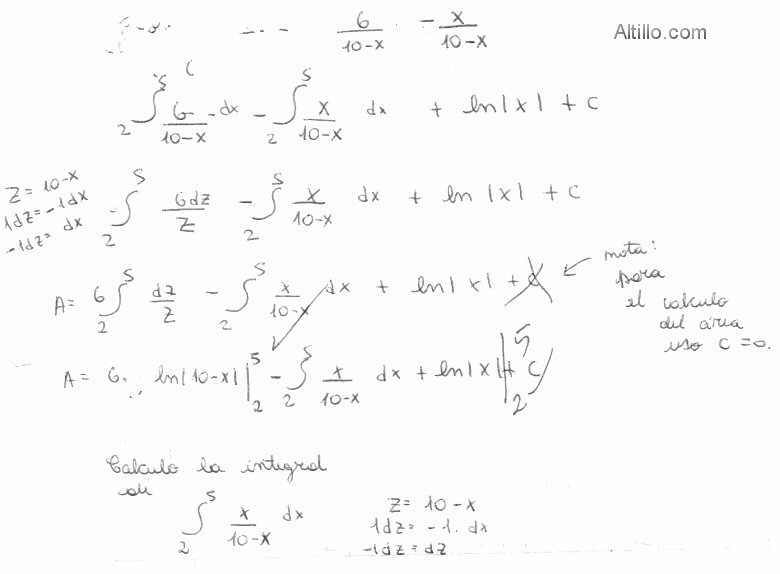 6/10-x - x/10-x
Altillo.com
2∫5 6/10-x dx - 2∫5 x/10-x dx + ln|x| + C
z = 10-x
1dz = -1dx
-1dz = dx
-2∫5 6dz/z - 2∫5 x/10-x dx + ln|x| + C
A = 6 2∫5 dz/z - 2∫5 x/10-x dx + ln|x| + C
nota:
para
el calculo
del área
uso C = 0.
A = 6. ln|10-x| |5 2 - 2∫5 x/10-x dx + ln|x| + C |5 2
Calculo la integral
de
2∫5 x/10-x dx
z = 10-x
1dz = -1. dx
-1dz = dz